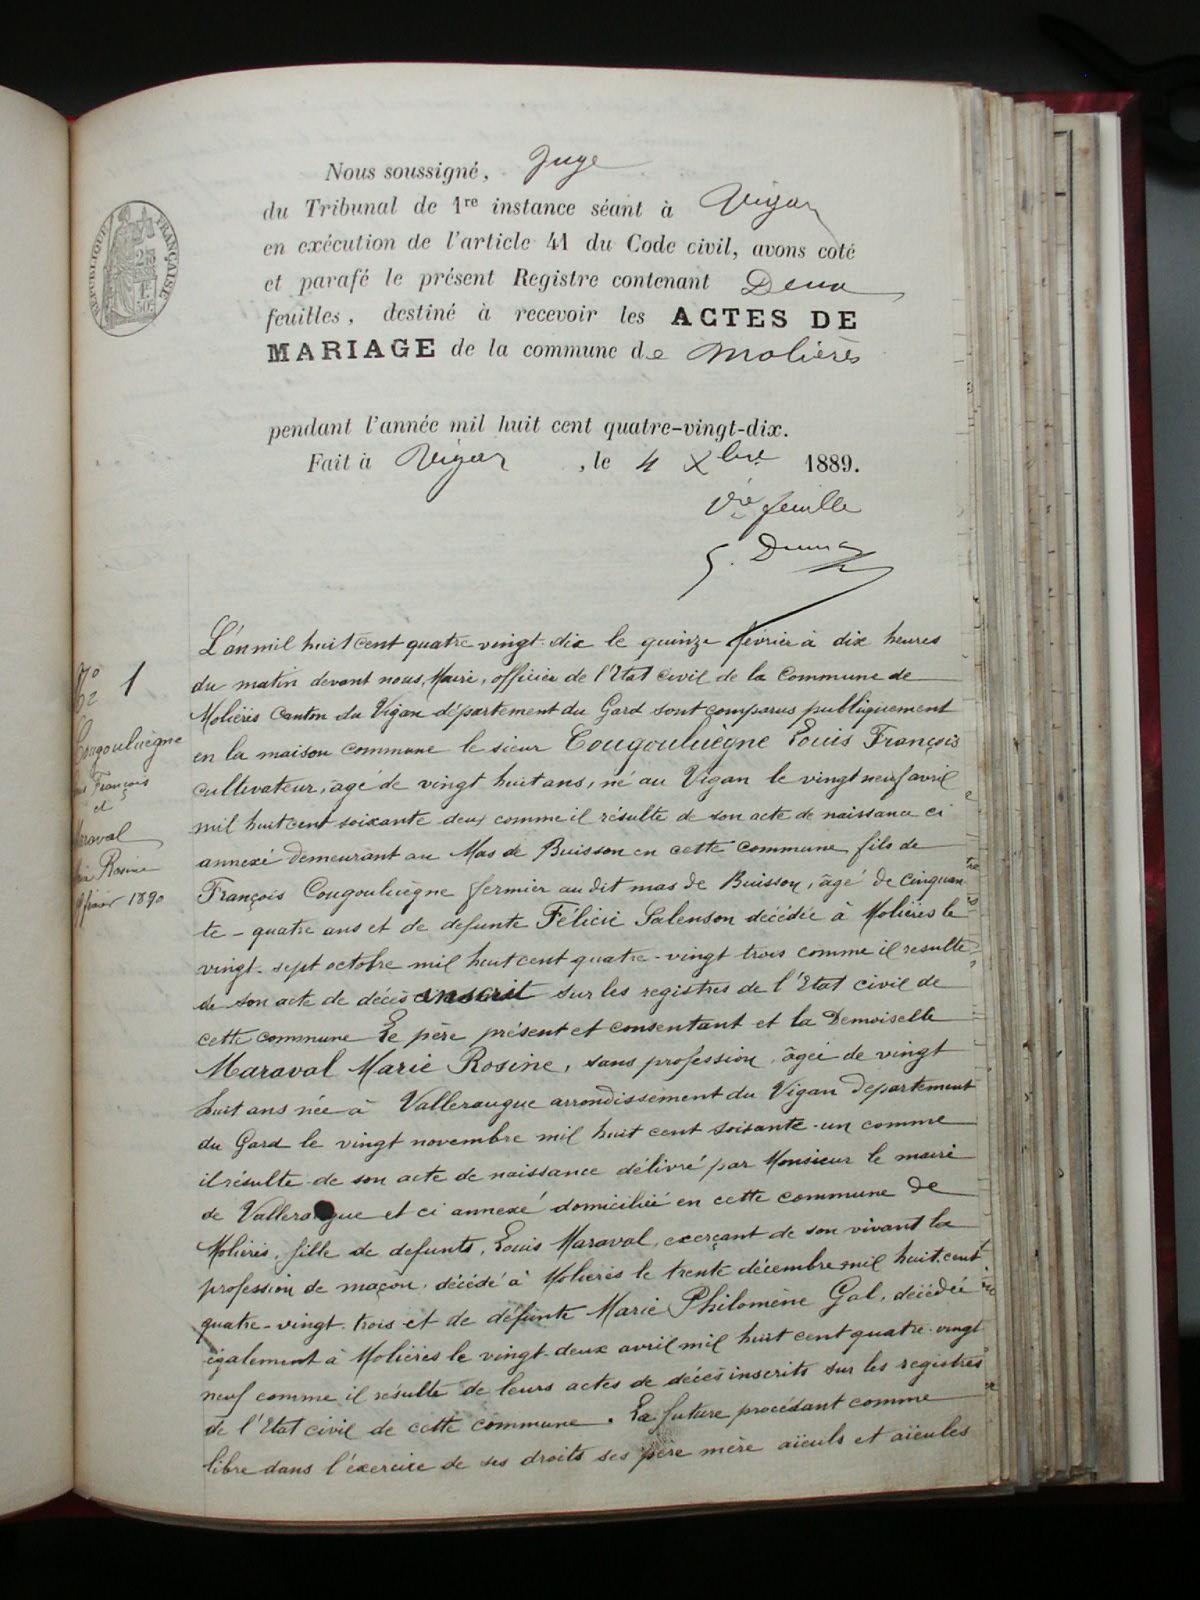 Nous soussigné, Juge
du Tribunal de 1re instance séant à Vigan
en exécution de l'article 41 du Code civil, avons coté
et parafé le présent Registre contenant Deux
feuilles, destiné à recevoir les ACTES DE
MARIAGE de la commune de Molières
pendant l'année mil huit cent quatre-vingt-dix.
Fait à Vigan, le 4 Xbre 1889.
1re feuille
RÉPUBLIQUE FRANÇAISE
No 1
Cougouluègne
François
et
Maraval
Rosine
1890
L'an mil huit cent quatre vingt-dix le quinze février à dix heures
du matin devant nous, Maire, officier de l'Etat civil de la Commune de
Molières Canton du Vigan département du Gard sont comparus publiquement
en la maison commune le sieur Cougouluègne Louis François
cultivateur, âgé de vingt huit ans, né au Vigan le vingt neuf avril
mil huit cent soixante deux comme il résulte de son acte de naissance ci
annexé demeurant au Mas de Buisson en cette commune fils de
François Cougouluègne fermier au dit mas de Buisson, âgé de cinquan-
te-quatre ans et de defunte Félicie Salenson décédée à Molières le
vingt-sept octobre mil huit cent quatre-vingt trois comme il resulte
de son acte de décès inscrit sur les registres de l'Etat civil de
cette commune Le père présent et consentant et la Demoiselle
Maraval Marie Rosine, sans profession, âgée de vingt
huit ans née à Valleraugue arrondissement du Vigan département
du Gard le vingt novembre mil huit cent soixante-un comme
il résulte de son acte de naissance délivré par Monsieur le maire
de Valleraugue et ci annexé domiciliée en cette commune de
Molières, fille de defunts, Louis Maraval, exerçant de son vivant la
profession de maçon, décédé à Molières le trente décembre mil huit cent
quatre-vingt-trois et de défunte Marie Philomène Gal, décédée
également à Molières le vingt-deux avril mil huit cent quatre-vingt
neuf comme il résulte de leurs actes de décès inscrits sur les registres
de l'Etat civil de cette commune. La future procédant comme
libre dans l'exercice de ses droits ses père mère aïeuls et aïeules